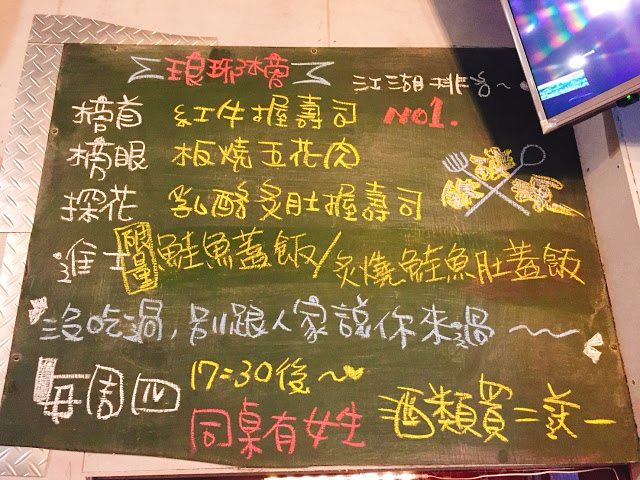 琅琊榜
江湖排名~
榜首 紅牛握壽司 NO1.
榜眼 板燒五花肉
探花 乳酪炙肚握壽司
進士 限量 鮭魚蓋飯/炙燒鮭魚肚蓋飯
沒吃過,別跟人家說你來過~
每周四 17:30後~
同桌有女生 酒類買二送一